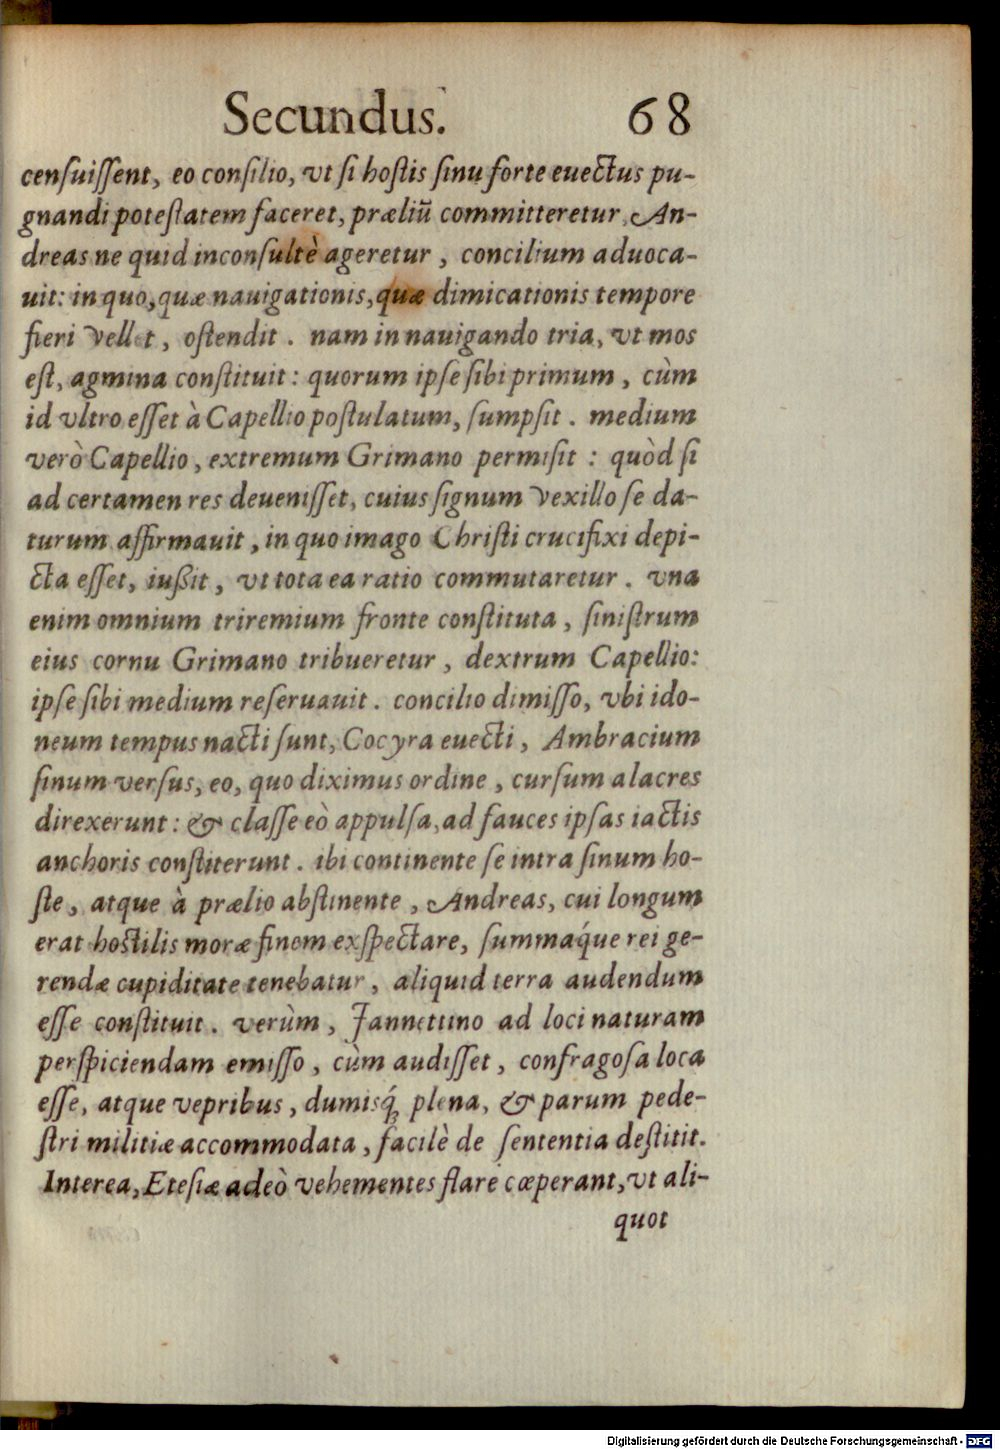 Secundus. 68
censuissent, eo consilio, vt si hostis sinu forte euectus pu-
gnandi potestatem faceret, præliū committeretur, An-
dreas ne quid inconsultè ageretur, concilium aduoca-
uit: in quo, quæ nauigationis, quæ dimicationis tempore
fieri vellet, ostendit. nam in nauigando tria, vt mos
est, agmina constituit: quorum ipse sibi primum, cùm
id vltro esset à Capellio postulatum, sumpsit. medium
verò Capellio, extremum Grimano permisit: quòd si
ad certamen res deuenisset, cuius signum vexillo se da-
turum affirmauit, in quo imago Christi crucifixi depi-
cta esset, iußit, vt tota ea ratio commutaretur. vna
enim omnium triremium fronte constituta, sinistrum
eius cornu Grimano tribueretur, dextrum Capellio:
ipse sibi medium reseruauit. concilio dimisso, vbi ido-
neum tempus nacti sunt, Cocyra euecti, Ambracium
sinum versus, eo, quo diximus ordine, cursum alacres
direxerunt: & classe eò appulsa, ad fauces ipsas iactis
anchoris constiterunt. ibi continente se intra sinum ho-
ste, atque à prælio abstinente, Andreas, cui longum
erat hostilis moræ finem exspectare, summaq́ue rei ge-
rendæ cupiditate tenebatur, aliquid terra audendum
esse constituit. verùm, Jannettino ad loci naturam
perspiciendam emisso, cùm audisset, confragosa loca
esse, atque vepribus, dumisq́; plena, & parum pede-
stri militiæ accommodata, facilè de sententia destitit.
Interea, Etesiæ adeò vehementes flare cœperant, vt ali-
quot
Digitalisierung gefördert durch die Deutsche Forschungsgemeinschaft - DFG